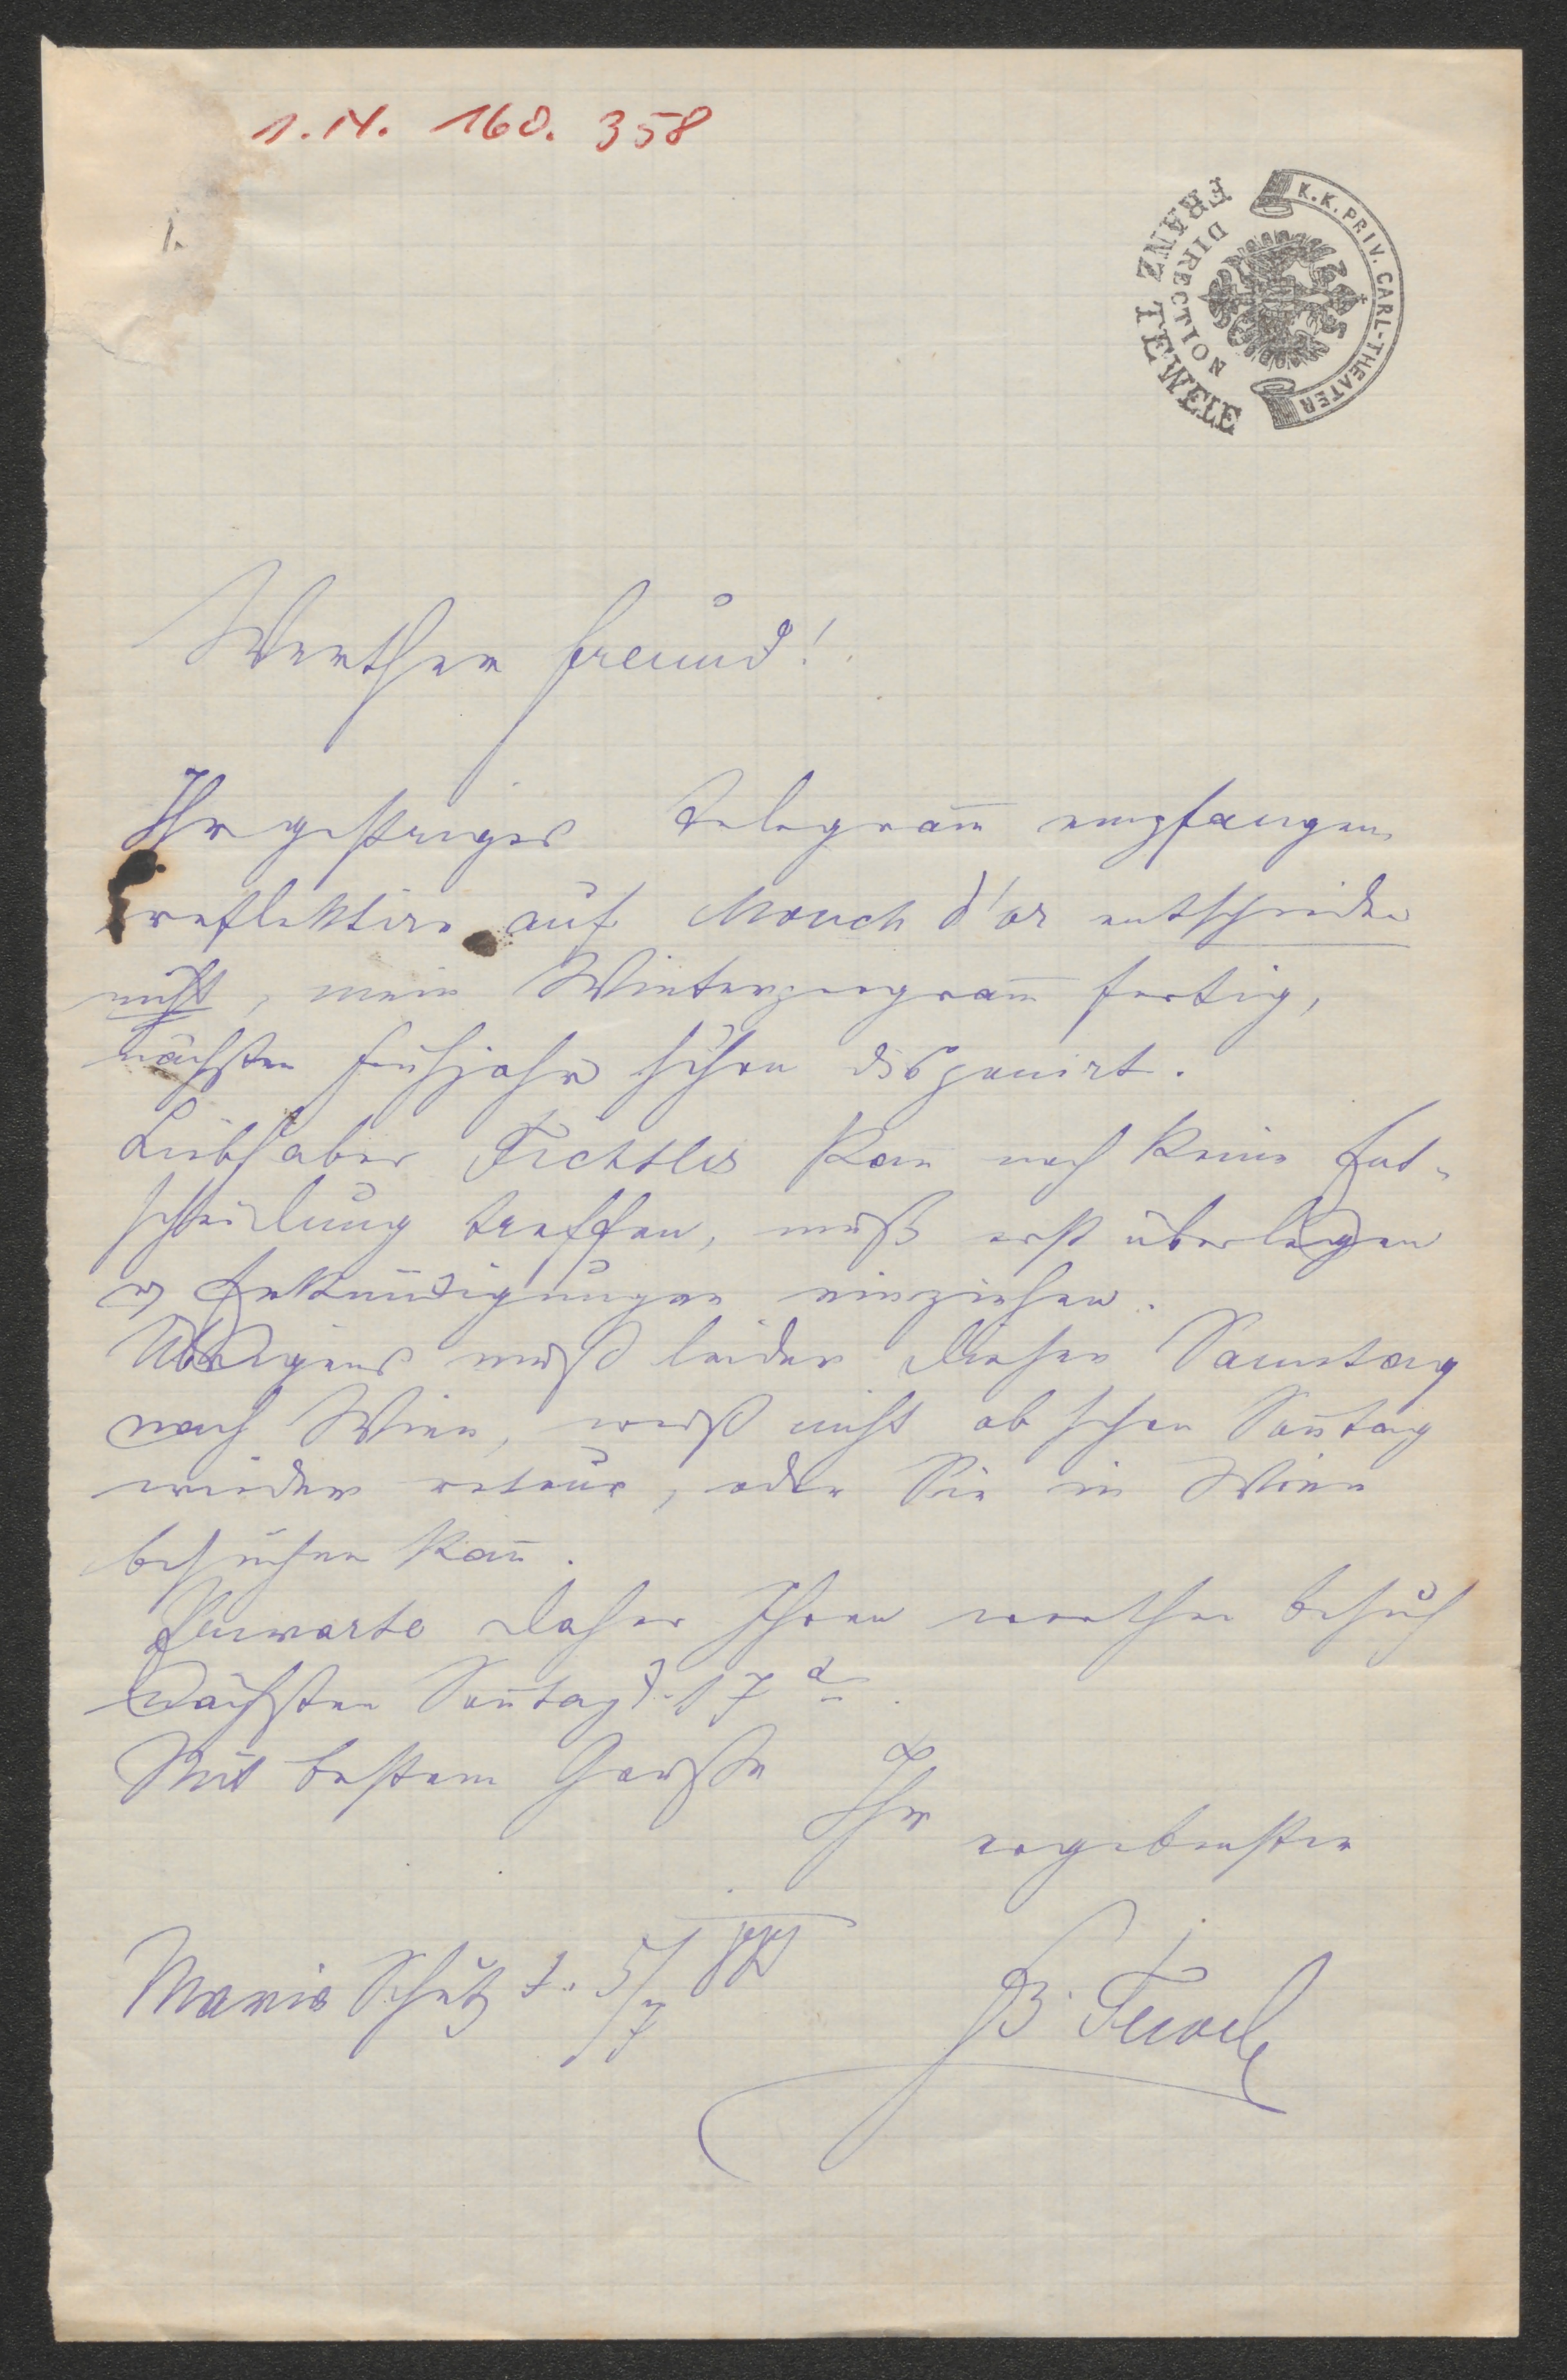 I.N. 160.358
1.
K.K. PRIV. CARL-THEATER
DIRECTION
FRANZ TEWELE
Werther Freund!
Ihr gestriges Telegram̅ empfangen
reflektire auf Mouch d'or entschieden
nicht, mein Winterprogram̅ fertig,
nächsten Frühjahr schon disponirt.
Liebhaber kan̅ noch keine Ent-
scheidung treffen, muß erst überlegen
u Erkundigungen einziehen.
Übrigens muß leider diesen Samstag
nach Wien, weiß nicht ob schon Son̅tag
wieder retour, oder Sie in Wien
besuchen kan̅.
Erwarte daher Ihren werthen Besuch
nächsten Son̅tag d. 17
Mit bestem Gruße
Ihr
ergebenster
Maria Schutz d. 5/7
F. Tewele